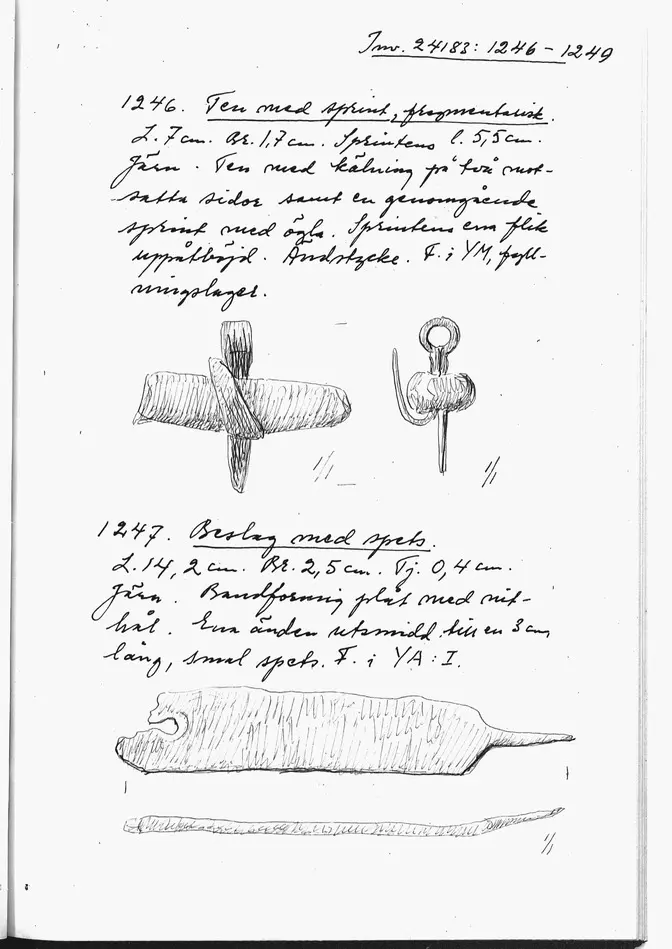 Inv. 24183: 1246 – 1249
1246. Ten med sprint, fragmentarisk.
L. 7 cm. Br. 1,7 cm. Sprintens l. 5,5 cm.
Järn. Ten med kälning på två mot-
satta sidor samt en genomgående
sprint med ögla. Sprintens ena flik
uppåtböjd. Ändstycke. F. i YM, fyll-
ningslager.
1/1
1/1
1247. Beslag med spets.
L. 14,2 cm. Br. 2,5 cm. Tj. 0,4 cm.
Järn. Bandformig plåt med nit-
hål. Ena änden utsmidd till en 3 cm
lång, smal spets. F. i YA: I.
1/1